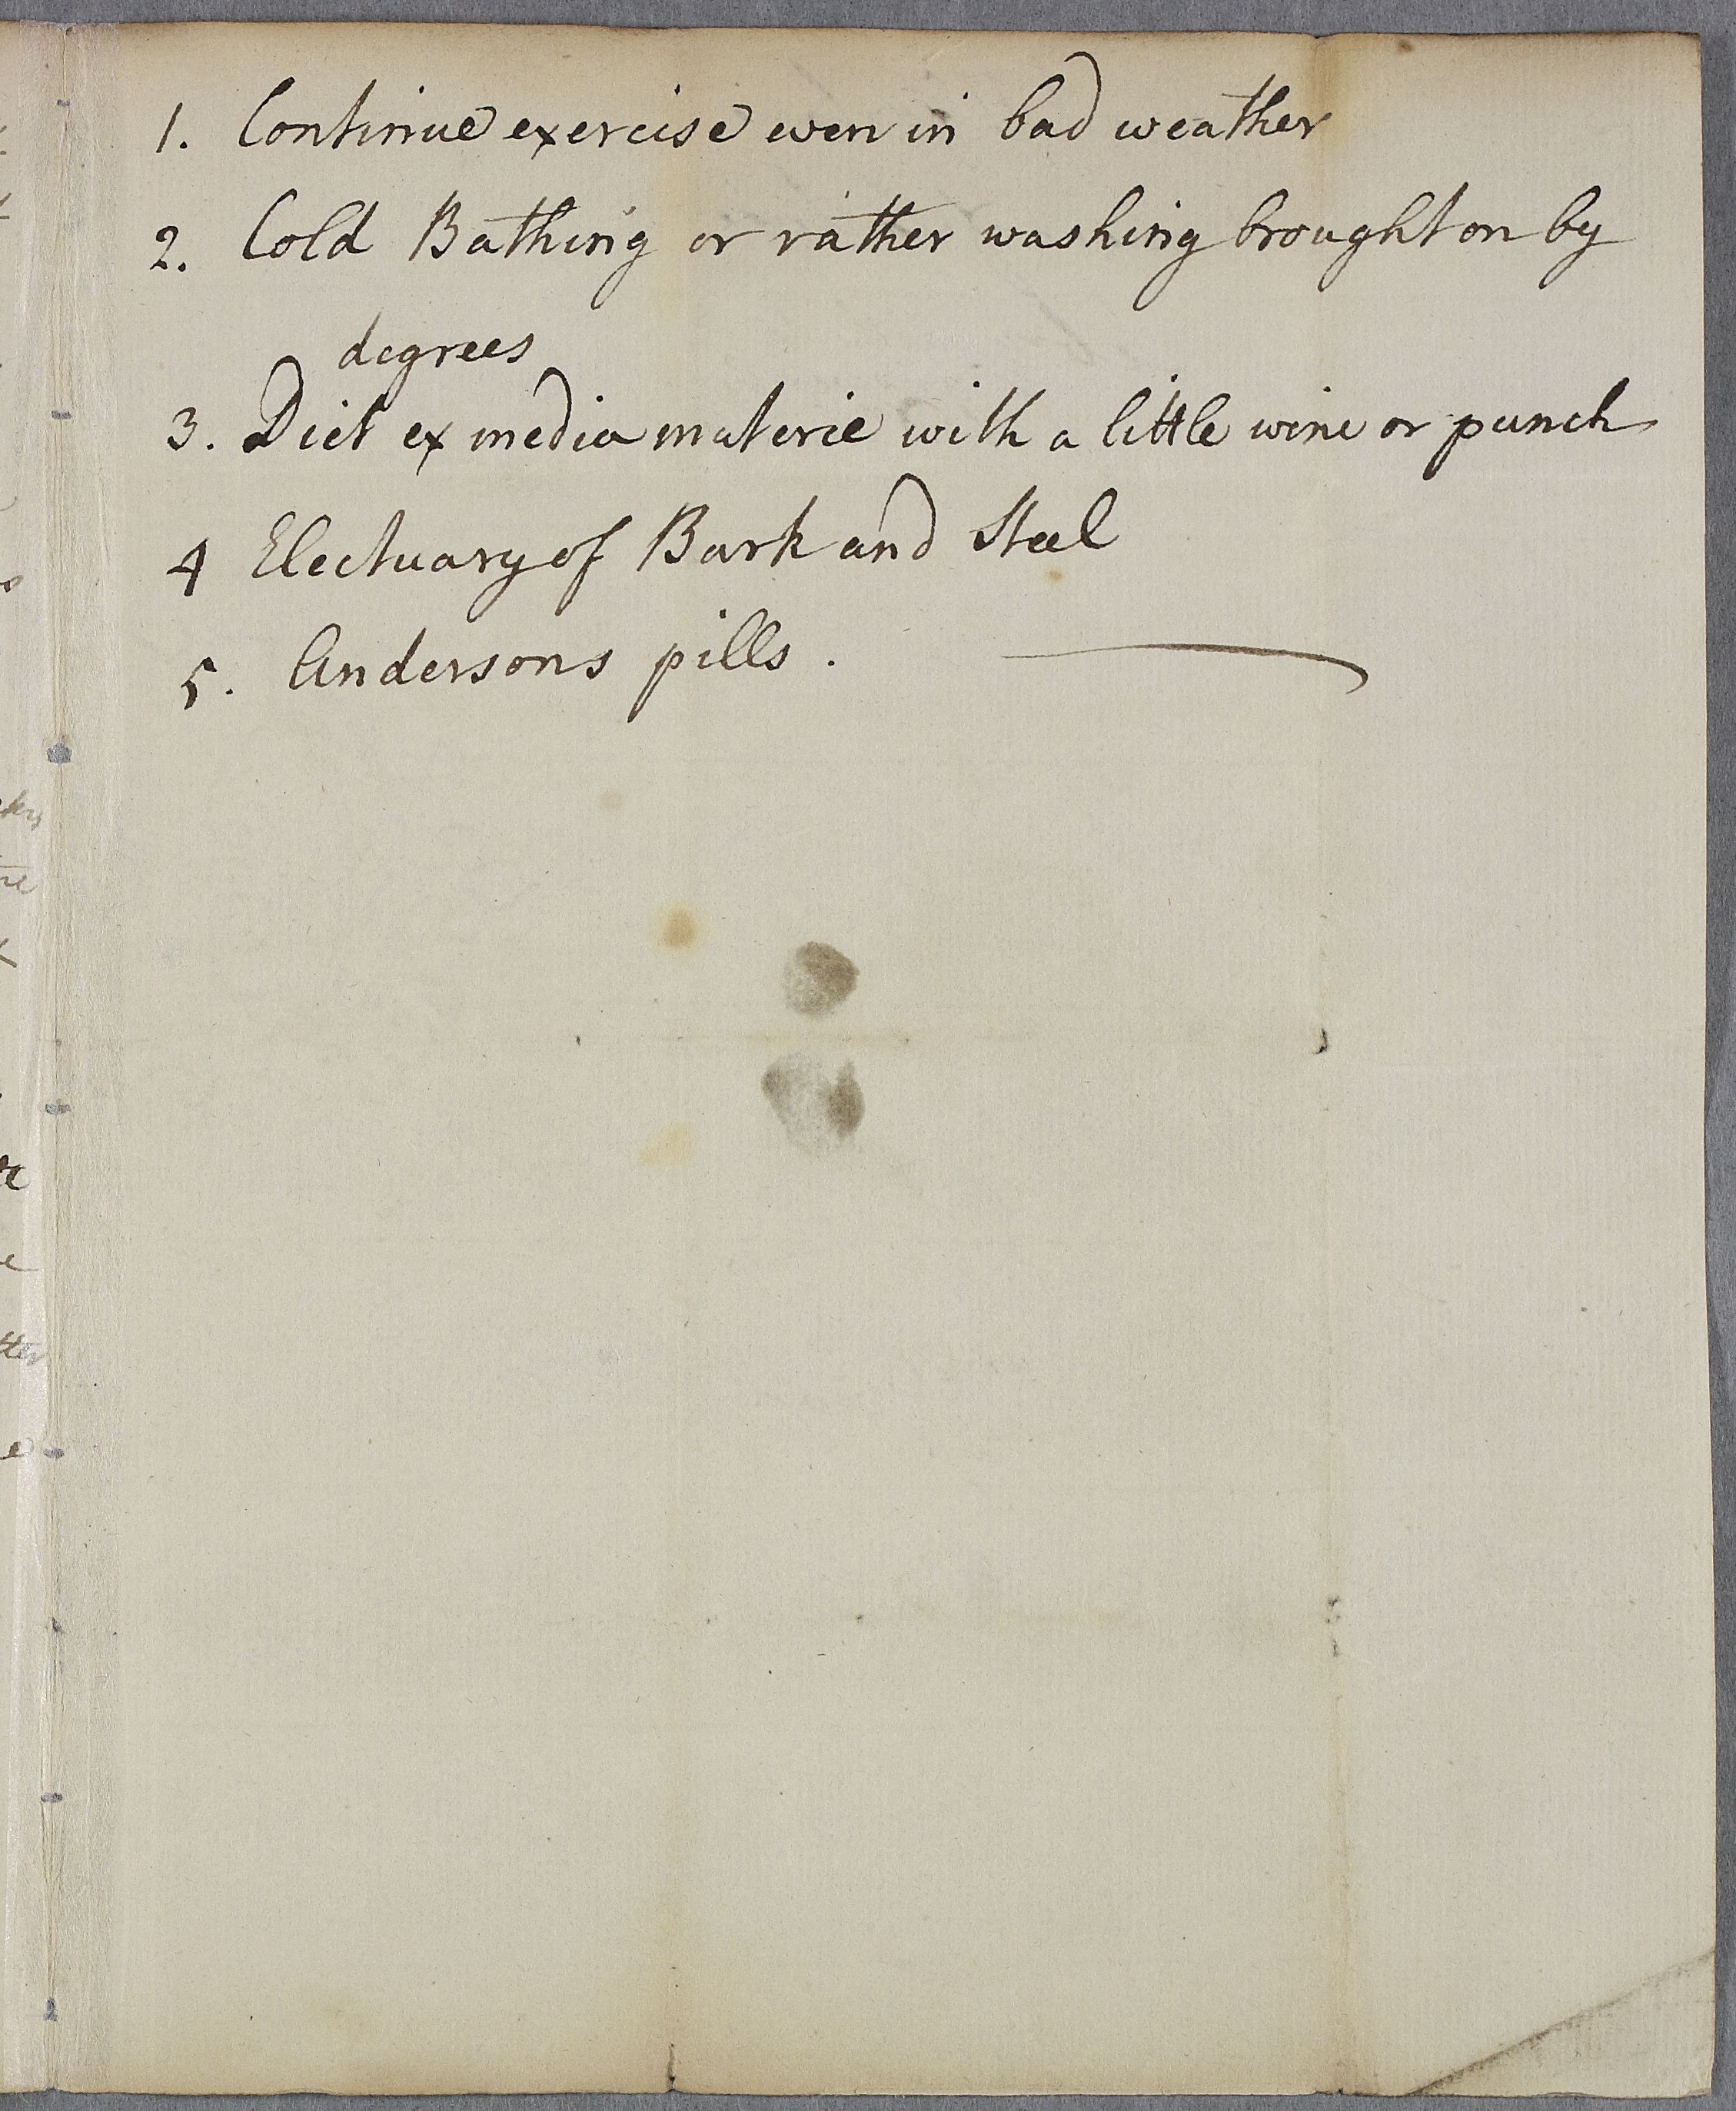 1. Continue exercise even in bad weather
2. Cold Bathing or rather washing brought on by
degrees
3. Diet ex media materie with a little wine or punch
4 Electuary of Bark and Steel
5. Andersons pills.